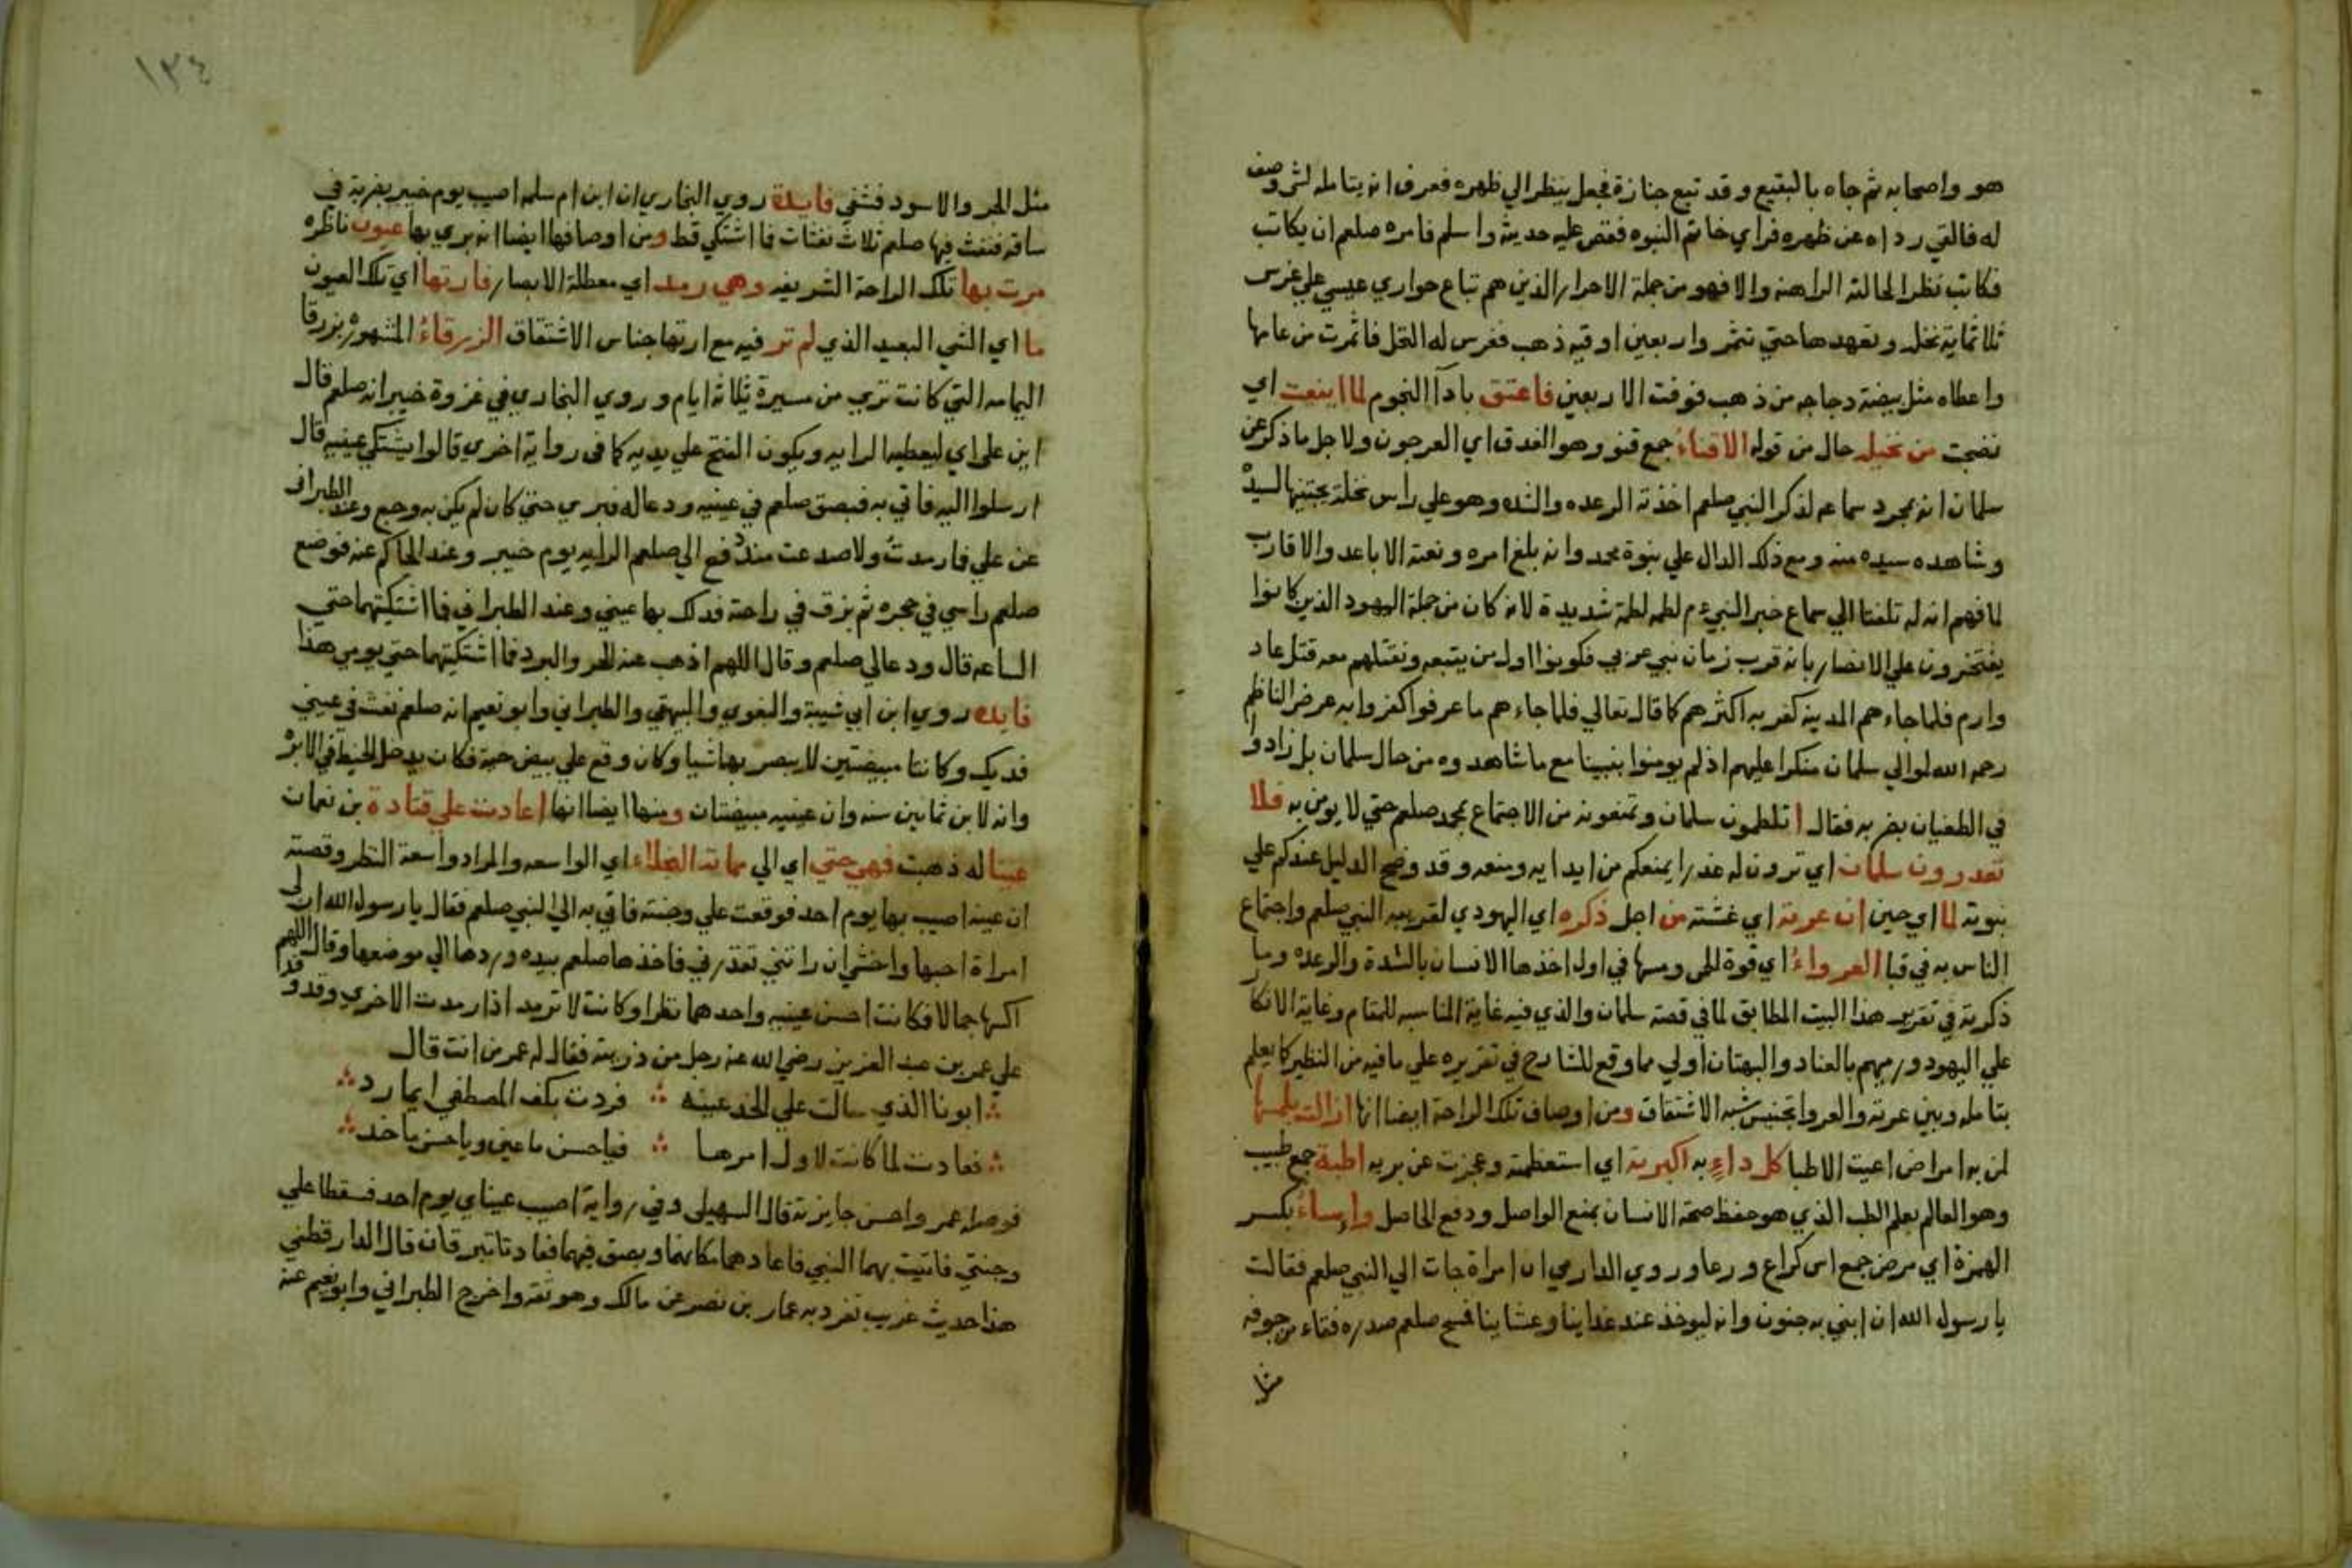 هو واصحابه ثم جاه بالبقيع وقد تبع جنازة فجعل ينظر الي ظهره فعرف انه يتامله لشي وصف
له فالقي رداه عن ظهره فراي خاتم النبوه فقص عليه حديثه واسلم فامره صلعم ان يكاتب
فكاتب نظرا لحالته الراهنة والا فهو من جملة الاحرار الذين هم تباع حواري عيسي علي غرس
ثلاثماية نخله وتعهدها حتي تثمر واربعين اوقيه ذهب فغرس له النخل فاثمرت من عامها
واعطاه مثل بيضة دجاجه من ذهب فوفت الاربعين فاعتق باداآ النجوم لما اينعت اي
نضجت من نخيله حال من قوله الاقناء جمع قنو وهو العذق اي العرجون ولاجل ما ذكر عن
سلمان انه بمجرد سماعه لذكر النبي صلعم اخذته الرعده والشده وهو علي راس نخلة يجتنيها لسيده
وشاهده سيده منه ومع ذلك الدال علي بنوة محمد وانه بلغ امره ونعته الاباعد والاقارب
لما فهم انه له تلفتا الي سماع خبر النبي م لطمه لطمة شديدة لانه كان من جملة اليهود الذين كانوا
يفتخرون علي الانصار بانه قرب زمان نبي عربي فكونوا اول من يتبعه ونقتلهم معه قتل عاد
وارم فلما جاءهم المدينة كفر به اكثرهم كما قال تعالي فلما جاءهم ما عرفوا كفروا به عرض الناظم
رحمه الله لوالي سلمان منكرا عليهم اذ لم يومنوا بنبينا مع ما شاهدوه من حال سلمان بل زادوا
في الطغيان بضربه فقال اتلطمون سلمان وتمنعونه من الاجتماع بمحمد صلعم حتي لا يومن به فلا
تعذرون سلمان اي ترون له عذرا يمنعكم من ايذايه ومنعه وقد وضح الدليل عندكم علي
بنوته لما اي حين ان عرته اي غشته من اجل ذكره اي اليهودي لقريبه النبي صلعم واجتماع
الناس به في قبا العرواء اي قوة الحمي ومسها في اول اخذها الانسان بالشدة والرعده وما
ذكرته في تقرير هذا البيت المطابق لما في قصة سلمان والذي فيه غاية المناسبه للمقام وغاية الانكار
علي اليهود ورميهم بالعناد والبهتان اولي مما وقع للشارح في تقريره علي ما فيه من النظير كما يعلم
بتامله وبين عرته والعروا تجنيس شبه الاشتقاق ومن اوصاف تلك الراحة ايضا انها ازالت بلمسها
لمن به امراض اعيت الاطبا كل داء به اكبرته اي استعظمته وعجزت عن بريه اطبة جمع طبيب
وهو العالم بعلم الطب الذي هو حفظ صحة الانسان بمنع الواصل ودفع الحاصل واساء بكسر
الهمزة اي مرض جمع اس كراع ورعا وروي الدارمي ان امراة جات الي النبي صلعم فقالت
يا رسول الله ان ابني به جنون وانه ليوخذ عند غداينا وعشاينا فمسح صلعم صدره فقاء من جوفه
مثل
١٣٤
مثل الجر والاسود فشفي فايدة روي البخاري ان ابن ام سلمه اصيب يوم خيبر بضربة في
ساقه فنفث فيها صلعم ثلاث نفثات فما اشتكي قط ومن اوصافها ايضا انه بري بها عيون ناظره
مرت بها تلك الراحة الشريفه وهي رمد اي معطلة الابصار فارتها اي تلك العيون
ما اي الشي البعيد الذي لم تر فيه مع ارتها جناس الاشتقاق الزرقاء المشهوره بزرقا
اليمامه التي كانت تري من مسيرة ثلاثة ايام وروي البخاري في غزوة خيبر انه صلعم قال
اين علي اي ليعطيه الرايه ويكون الفتح علي يديه كما في رواية اخري قالوا يشتكي عينيه قال
ارسلوا اليه فاتي به فبصق صلعم في عينيه ودعا له فبري حتي كان لم يكن به وجع وعند الطبراني
عن علي فما رمدت ولا صدعت منذ دفع الي صلعم الرايه يوم خيبر وعند الحاكم عنه فوضع
صلعم راسي في حجره ثم بزق في راحته فدلك بها عيني وعند الطبراني فما اشتكيتهما حتي
الساعه قال ودعا لي صلعم وقال اللهم اذهب عنه الحر والبرد فما اشتكيتهما حتي يومي هذا
فايده روي ابن ابي شيبة والبغوي والبيهقي والطبراني وابو نعيم انه صلعم نفث في عيني
فديك وكانتا مبيضتين لا يبصر بهما شيا وكان وقع علي بيض حية فكان يدخل الخيط في الابرة
وانه لابن ثمانين سنه وان عينيه مبيضتان ومنها ايضا انها اعادت علي قتادة بن نعمان
عينا له ذهبت فهي حتي اي الي مماته النجلاء اي الواسعه والمراد واسعة النظر وقصته
ان عينه اصيب بها يوم احد فوقعت علي وجنته فاتي به الي النبي صلعم فقال يا رسول الله ان لي
امراة احبها واخشي ان راتني تقذرني فاخذها صلعم بيده وردها الي موضعها وقال اللهم
اكسها جمالا فكانت احسن عينيه واحدهما نظرا وكانت لا ترمد اذا رمدت الاخري وقد وفد
علي عمر بن عبد العزيز رضي الله عنه رجل من ذريته فقال له عمر من انت قال
ابونا الذي سالت علي الخد عينه فردت بكف المصطفي ايما رد
فعادت لما كانت لاول امرها فيا حسن ما عين ويا حسن ما خد
فوصله عمر واحسن جايزته قال السهيلي وفي رواية اصيب عيناي يوم احد فسقطا علي
وجنتي فاتيت بهما النبي فاعادهما مكانهما وبصق فيهما فعادتا تبرقان قال الدارقطني
هذا حديث غريب تفرد به عمار بن نصر عن مالك وهو ثقة واخرج الطبراني وابو نعيم عنه